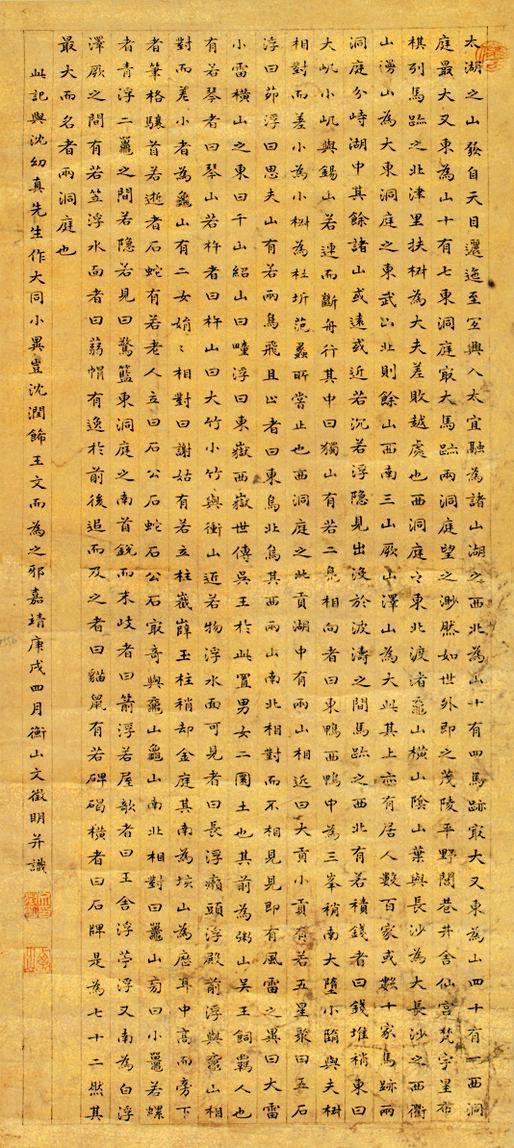 太湖之山發自天目邐迤至宜興入太宜融為諸山湖之西北為山十有四馬跡冣大又東為山四十有一西洞
庭最大又東為山十有七東洞庭冣大馬跡兩洞庭望之渺然如世外即之茂陵平野閭巷井舍仙宮梵宇星布
棋列馬跡之北津里扶樹為大夫差敗越處也西洞庭之東北渡渚黿山橫山陰山葉與長沙為大長沙之西衝
山漫山為大東洞庭之東武山北則餘山西南三山厥山澤山為大此其上亦有居人數百家或數十家馬跡兩
洞庭分峙湖中其餘諸山或遠或近若沉若浮隱見出沒於波濤之間馬跡之西北有若積錢者曰錢堆稍東曰
大屼小屼與錫山若連而斷舟行其中曰獨山有若二鳧相向者曰東鴨西鴨中為三峯稍南大墮小墮與夫樹
相對而差小為小樹為杜圻范蠡所嘗止也西洞庭之北貢湖中有兩山相近曰大貢小貢有若五星聚曰五石
浮曰茆浮曰思夫山有若兩鳥飛且止者曰東鳥北鳥其西兩山南北相對而不相見見即有風雷之異曰大雷
小雷橫山之東曰千山紹山曰疃浮曰東嶽西嶽世傳吳王於此置男女二圄土也其前為粥山吳王飼羈人也
有若琴者曰琴山若杵者曰杵山曰大竹小竹與衝山近若物浮水面可見者曰長浮癩頭浮殿前浮與黿山相
對而差小者為龜山有二女娟〻相對曰謝姑有若立柱嶻嶭玉柱稍却金庭其南為垓山為歷耳中高而旁下
者筆格驤首若逝者石蛇有若老人立曰石公石蛇石公石冣奇與黿山龜山南北相對曰鼉山旁曰小鼉若螺
者青浮二鼉之間若隱若見曰驚籃東洞庭之南首銳而末歧者曰箭浮若屋欹者曰王舍浮苧浮又南為白浮
澤厥之間有若笠浮水面者曰蒻帽有逸於前後追而及之者曰貓鼠有若碑碣橫者曰石牌是為七十二然其
最大而名者兩洞庭也
此記與沈幼真先生作大同小異豈沈潤飾王文而為之邪嘉靖庚戌四月衡山文徵明并識